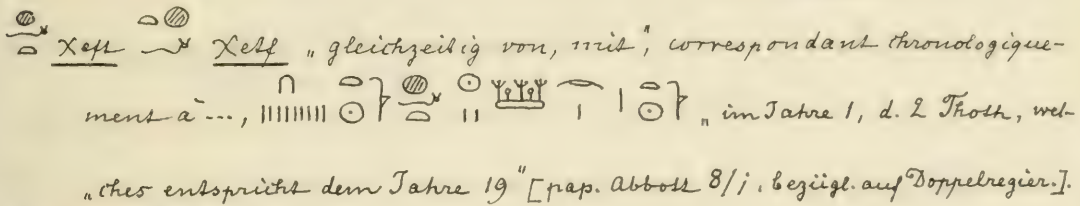 𓐍𓆑𓏏 χeft 𓏏𓐍𓆑 χetf „gleichzeitig von, mit“, correspondant chronologique-
ment à ..., 𓎆𓏺𓏺𓏺𓏺𓏺𓏺𓏺𓏺𓏺 𓆳𓏏𓇳 𓐍𓆑𓏏 𓇳𓏻 𓆷 𓇹𓏺 𓏺 𓆳𓏏𓇳 „im Jahre 1, d. 2 Thoth, wel-
„ches entspricht dem Jahre 19“ [pap. Abbott 8/1, bezügl. auf Doppelregier.].